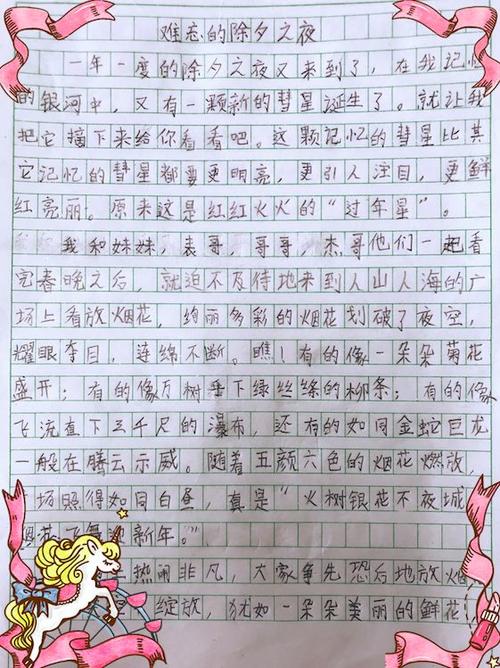 难忘的除夕之夜
一年一度的除夕之夜又来到了，在我记忆
的银河中，又有一颗新的彗星诞生了。就让我
把它摘下来给你看看吧。这颗记忆的彗星比其
它记忆的彗星都要更明亮，更引人注目，更鲜
红亮丽。原来这是红红火火的“过年星”。
我和妹妹，表哥，哥哥，杰哥他们一起看
完春晚之后，就迫不及待地来到人山人海的广
场上看放烟花，绚丽多彩的烟花划破了夜空，
耀眼夺目，连绵不断。瞧！有的像一朵朵菊花
盛开；有的像万树垂下绿丝绦的柳条；有的像
飞流直下三千尺的瀑布，还有的如同金蛇巨龙
一般在腾云示威。随着五颜六色的烟花燃放，
场照得如同白昼，真是“火树银花不夜城
烟花飞舞迎新年。”
热闹非凡，大家争先恐后地放烟
绽放，犹如一朵朵美丽的鲜花！